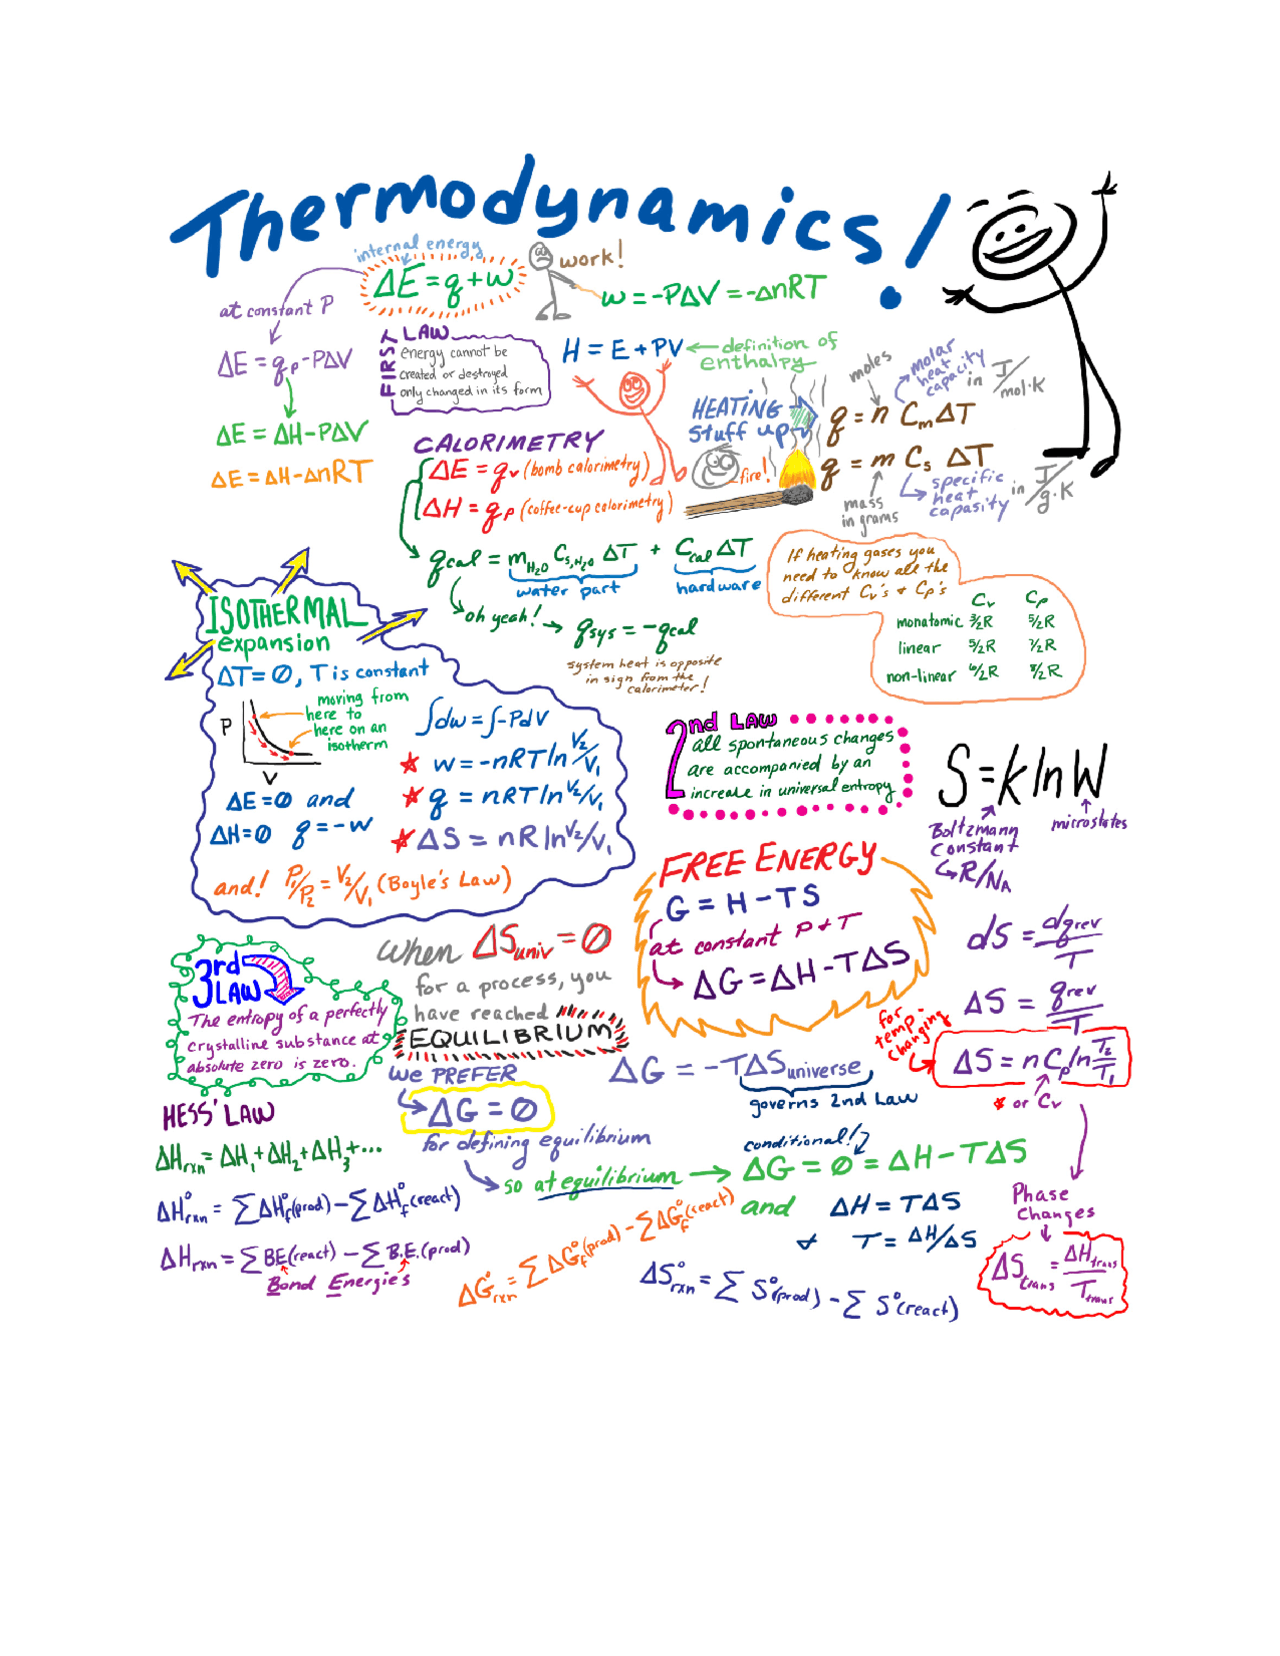 Thermodynamics!
internal energy
ΔE = q + w
work!
w = -PΔV = -ΔnRT
at constant P
ΔE = qp - PΔV
ΔE = ΔH - PΔV
ΔE = ΔH - ΔnRT
FIRST LAW
energy cannot be
created or destroyed
only changed in its form
H = E + PV ← definition of
enthalpy
HEATING
stuff up
fire!
moles
molar
heat
capacity
in J/mol·K
q = n Cm ΔT
q = m Cs ΔT
mass
in grams
specific
heat
capasity
in J/g·K
CALORIMETRY
ΔE = qv (bomb calorimetry)
ΔH = qp (coffee-cup calorimetry)
qcal = mH2O Cs,H2O ΔT + Ccal ΔT
water part
hardware
oh yeah! → qsys = -qcal
system heat is opposite
in sign from the
calorimeter!
If heating gases you
need to know all the
different Cv's & Cp's
Cv Cp
monatomic 3/2R 5/2R
linear 5/2R 7/2R
non-linear 6/2R 8/2R
ISOTHERMAL
expansion
ΔT = 0, T is constant
P
V
moving from
here to
here on an
isotherm
∫dw = ∫-PdV
★ w = -nRT ln V2/V1
★ q = nRT ln V2/V1
★ ΔS = nR ln V2/V1
ΔE = 0 and
ΔH = 0 q = -w
and! P1/P2 = V2/V1 (Boyle's Law)
2nd LAW
all spontaneous changes
are accompanied by an
increase in universal entropy
S = k ln W
Boltzmann
Constant
↳ R/NA
microstates
FREE ENERGY
G = H - TS
at constant P & T
→ ΔG = ΔH - TΔS
dS = dqrev/T
ΔS = qrev/T
for
temp.
changing
ΔS = nCp ln T2/T1
* or Cv
3rd
LAW
The entropy of a perfectly
crystalline substance at
absolute zero is zero.
When ΔSuniv = 0
for a process, you
have reached
EQUILIBRIUM
We PREFER
→ ΔG = 0
for defining equilibrium
ΔG = -TΔSuniverse
governs 2nd Law
so at equilibrium →
conditional!
ΔG = 0 = ΔH - TΔS
and ΔH = TΔS
& T = ΔH/ΔS
Phase
Changes
ΔStrans = ΔHtrans/Ttrans
HESS' LAW
ΔHrxn = ΔH1 + ΔH2 + ΔH3 + ...
ΔH°rxn = ΣΔH°f(prod) - ΣΔH°f(react)
ΔHrxn = ΣBE(react) - ΣB.E.(prod)
Bond Energies
ΔG°rxn = ΣΔG°f(prod) - ΣΔG°f(react)
ΔS°rxn = ΣS°(prod) - ΣS°(react)